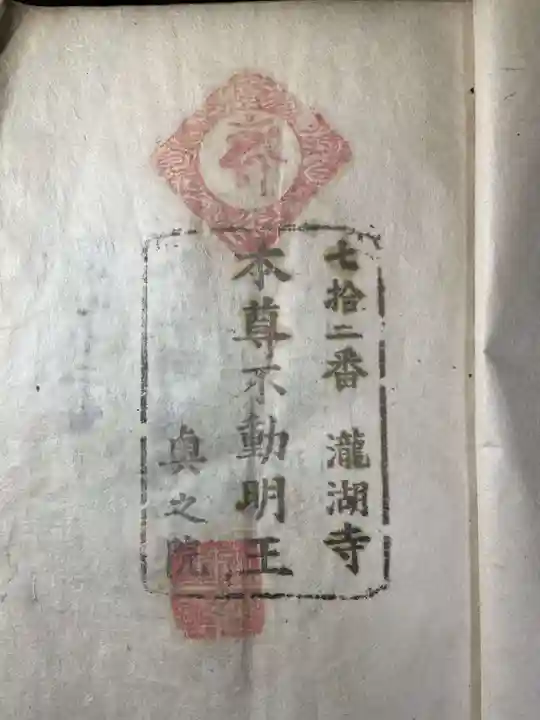 七拾二番 瀧湖寺
本尊不動明王
奥之院